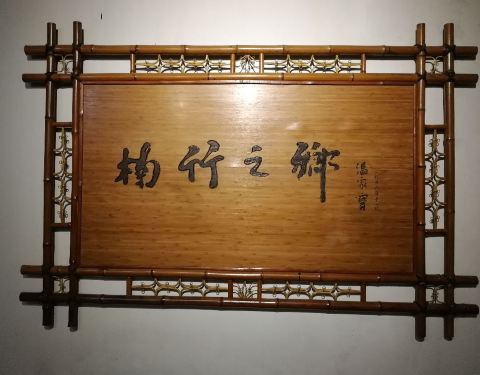 楠竹之乡
温家宝